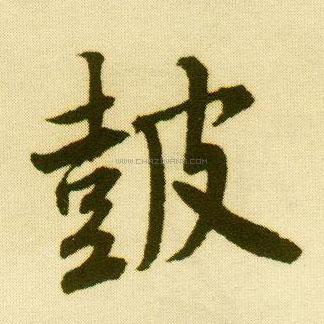 皷
WWW.CHAZIWANG.COM